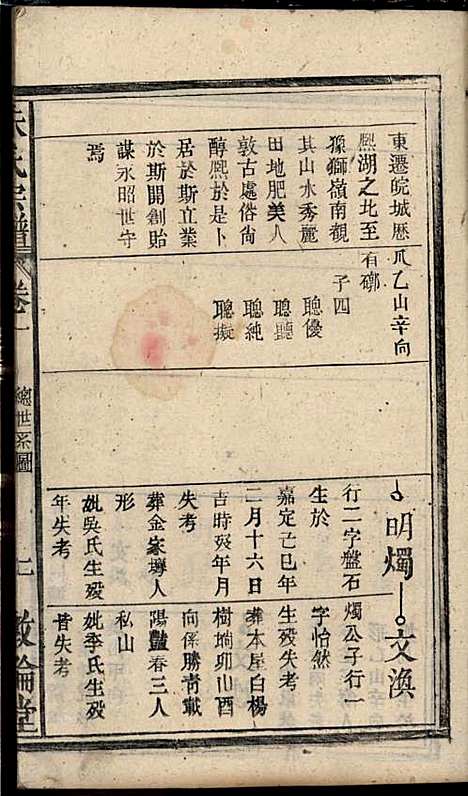 東遷皖城歷
熙湖之北至
獅嶺南觀
其山水秀麗
田地肥美人
敦古處俗尚
醇熙於是卜
居於斯立業
於斯開創貽
謀永昭世守
焉
爪乙山辛向
有碑
子四
聰優
聰聽
聰純
聰擬
明燭
行二字盤石
生於
嘉定己巳年
二月十六日
吉時歿年月
失考
葬金家塝人
形
妣吳氏生歿
年失考
文渙
燭公子行一
字怡然
生歿失考
葬本屋白楊
樹塆卯山酉
向係勝青載
陽豔春三人
私山
妣李氏生歿
皆失考
朱氏宗譜
卷一
總世系圖
上
敦倫堂